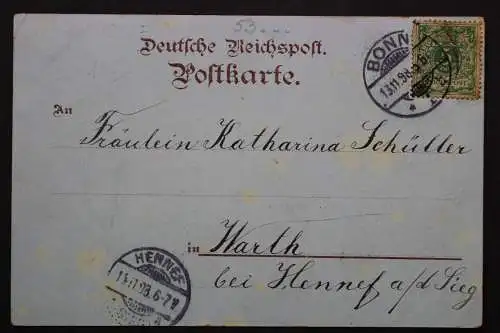 53
Deutsche Reichspost.
Postkarte.
BONN
13.11.98.
An
Fräulein Katharina Schüller
in Warth
bei Hennef a/d Sieg
HENNEF
13.11.98.6-7N